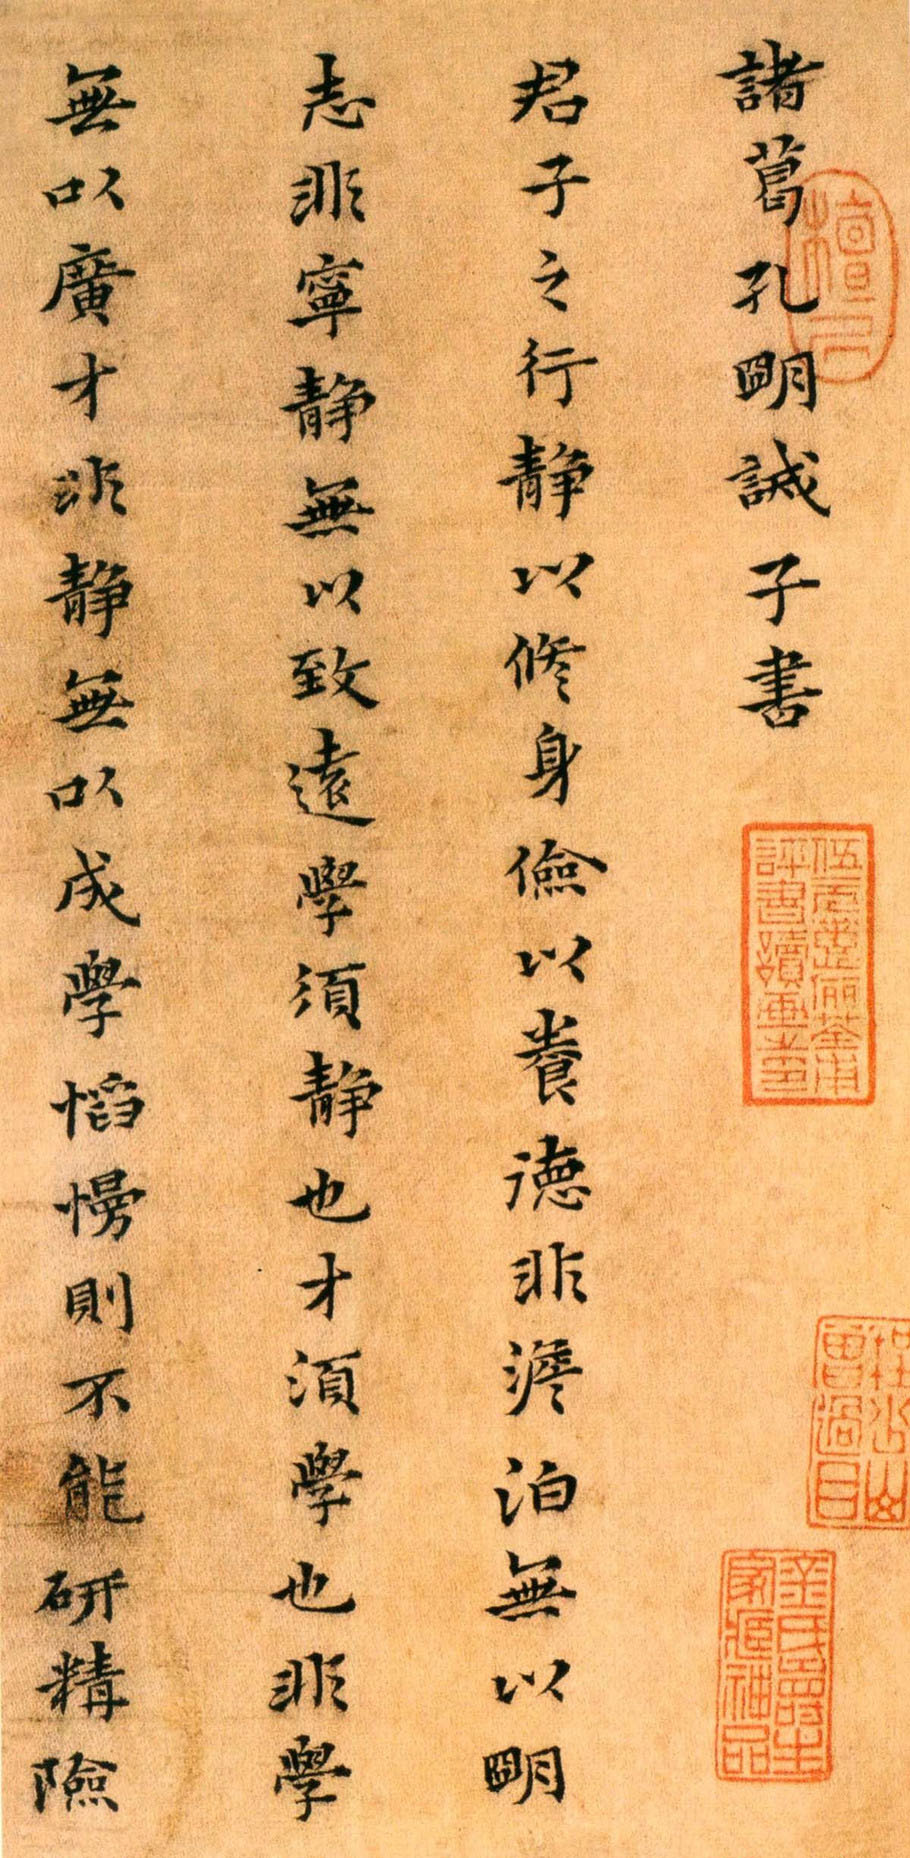 諸葛孔明誡子書
君子之行静以修身儉以養德非澹泊無以明
志非寧静無以致遠學須静也才須學也非學
無以廣才非静無以成學慆慢則不能研精險
伍元蕙儷荃甫
評書讀畫之印
曾過目
家藏神品